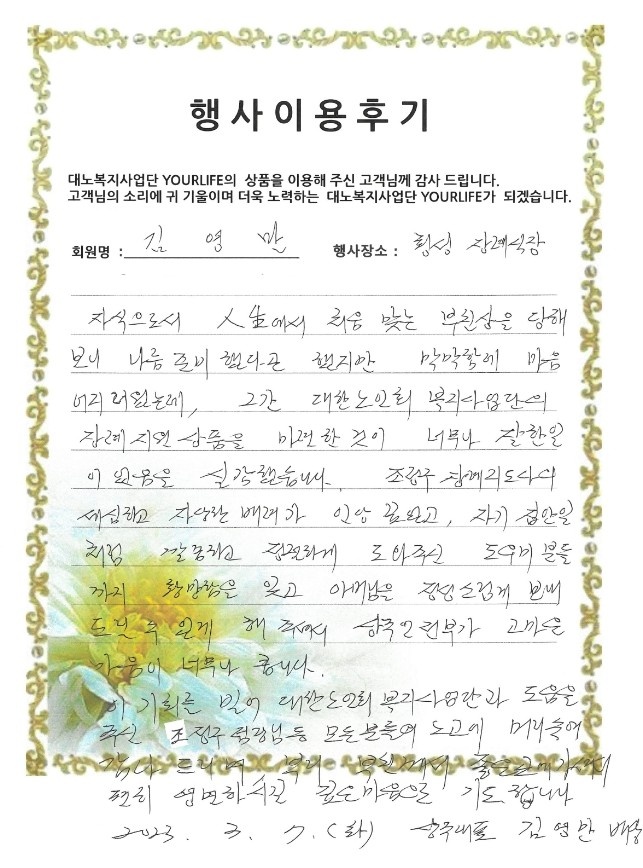 행사이용후기
대노복지사업단 YOURLIFE의 상품을 이용해 주신 고객님께 감사 드립니다.
고객님의 소리에 귀 기울이며 더욱 노력하는 대노복지사업단 YOURLIFE가 되겠습니다.
회원명 : 김 영 만 행사장소 : 횡성 장례식장
자식으로서 人生에서 처음 맞는 부친상을 당해
보니 나름 준비했다곤 했지만 막막함에 마음
어지러웠는데, 그간 대한노인회 복지사업단의
장례지원상품을 마련한 것이 너무나 잘한일
이 었음을 실감했습니다. 조정구 장례지도사의
세심하고 자상한 배려가 인상 깊었고, 자기 집안일
처럼 깔끔하고 친절하게 도와주신 도우미분들
까지 황망함을 잊고 아버님을 정성스럽게 보내
드릴 수 있게 해 주셔서 상주인 전부가 고마운
마음이 너무나 큽니다.
이 기회를 빌어 대한노인회 복지사업단과 도움을
주신 조정구 팀장님 등 모든분들의 노고에 머리숙여
감사 드리며 부친께서 좋은곳에가셔서
편히 영면하시길 깊은마음으로 기도합니다
2023. 3. 7. (화) 상주대표 김영만 배상